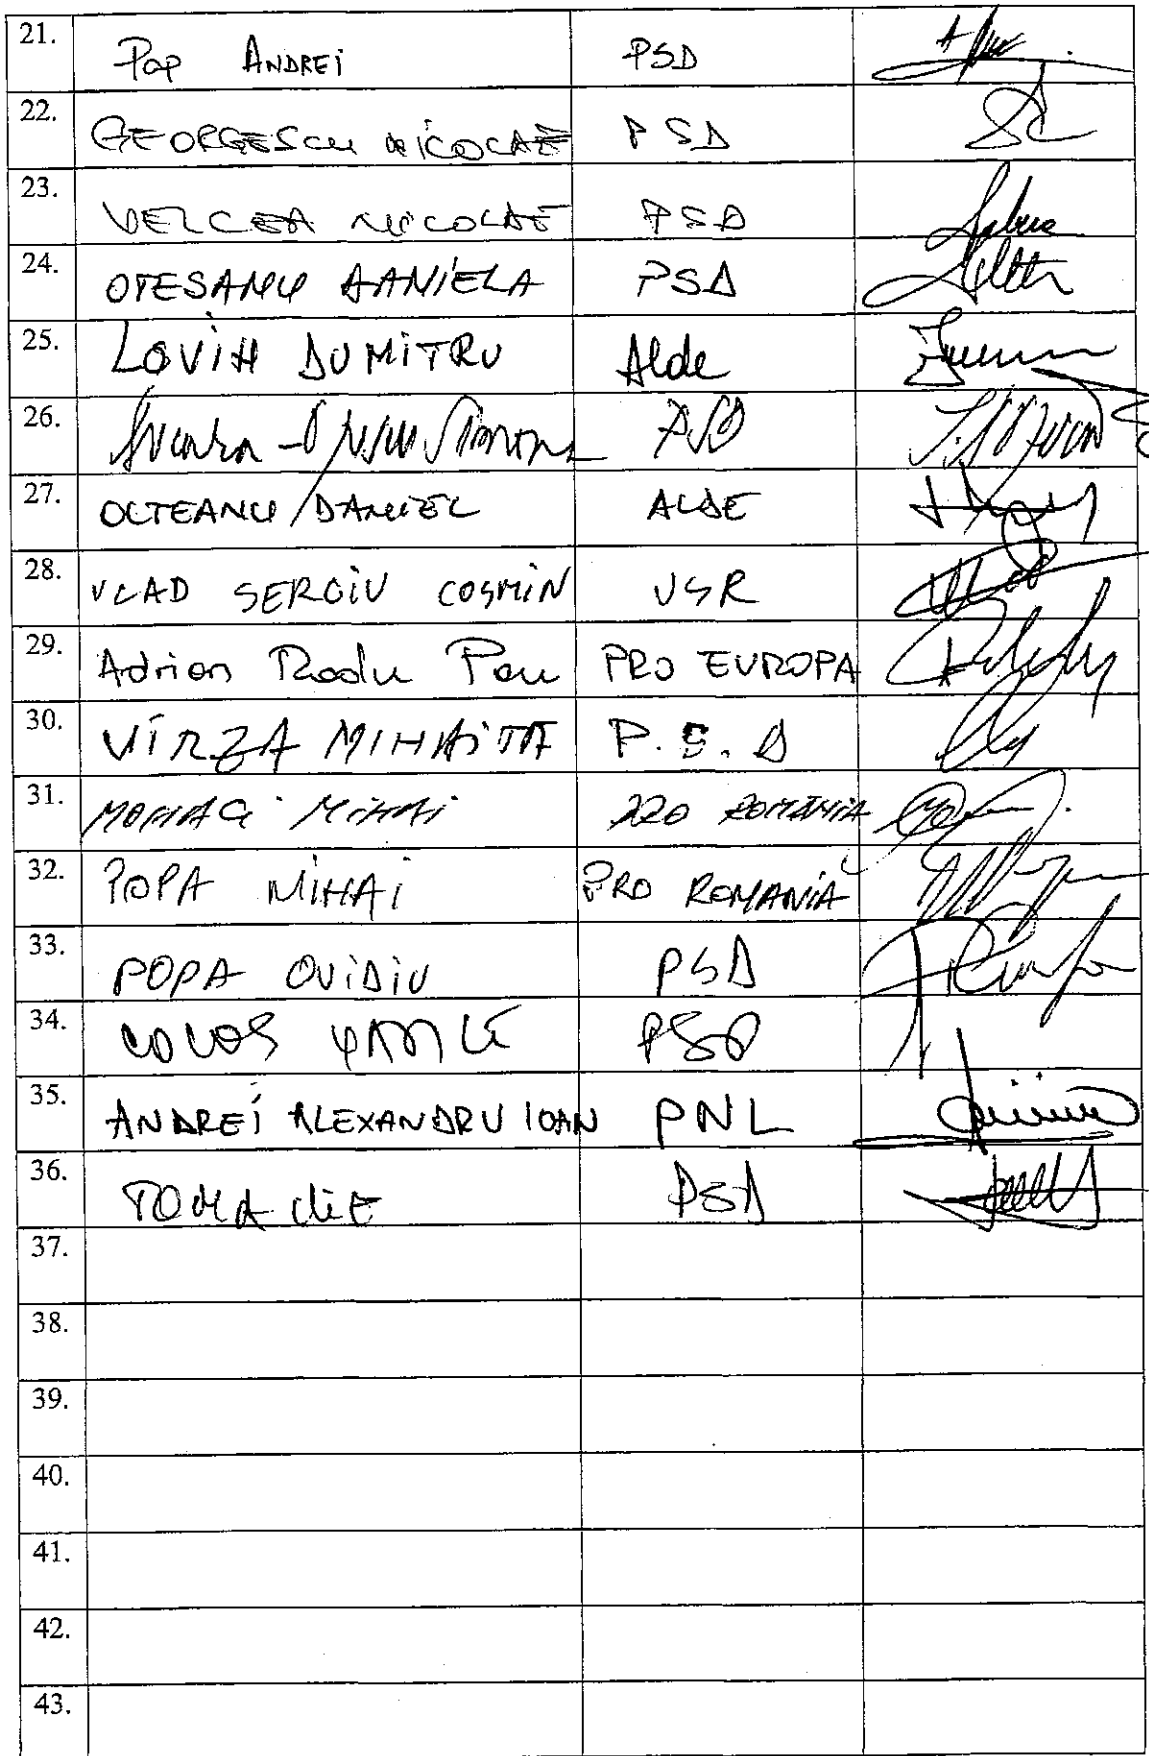 21. Pop ANDREI PSD
22. GEORGESCU NICOLAE PSD
23. VELCEA NICOLAE PSD
24. OTESANU DANIELA PSD
25. LOVIN DUMITRU Alde
26. PSD
27. OLTEANU DANIEL ALDE
28. VLAD SERGIU COSMIN USR
29. Adrian Radu Pau PRO EUROPA
30. VÎRZA MIHĂIȚĂ P.S.D
31. MIHAI PRO ROMÂNIA
32. POPA MIHAI PRO ROMANIA
33. POPA OVIDIU PSD
34. PSD
35. ANDREI ALEXANDRU IOAN PNL
36. TOMA ILIE PSD
37.
38.
39.
40.
41.
42.
43.